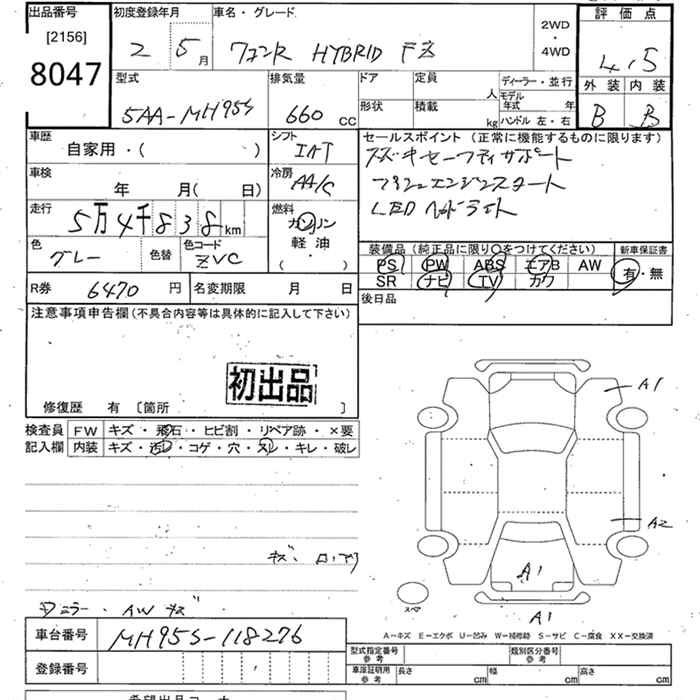 出品番号 初度登録年月 車名・グレード 2WD・4WD 評価点
[2156]
8047 2 5月 ワゴンR HYBRID FZ 4.5
外装 内装
B B
型式 排気量 ドア 定員 人 ディーラー・並行
5AA-MH95S 660 CC 形状 積載 kg モデル年式 年
ハンドル 左・右
車歴 シフト セールスポイント (正常に機能するものに限ります)
自家用・( ) IAT スズキセーフティサポート
車検 冷房 プッシュエンジンスタート
年 月( 日) AA/C LEDヘッドライト
走行 燃料
5万4千838km ガソリン
軽油
( ・ )
色 色替 色コード
グレー ZVC
装備品(純正品に限り○をつけてください) 新車保証書
PS PW ABS エアB AW 有・無
SR ナビ TV カワ
R券 6470円 名変期限 月 日 後日品
注意事項申告欄(不具合内容等は具体的に記入して下さい)
初出品
修復歴 有 〔箇所 〕
検査員 FW キズ・飛石・ヒビ割・リペア跡・×要
記入欄 内装 キズ・汚レ・コゲ・穴・スレ・キレ・破レ
A1
A2
A1
スペア
A1
ミラー・AWキズ
A-キズ E-エクボ U-凹み W-補修跡 S-サビ C-腐食 XX-交換済
車台番号 MH95S-118276
登録番号
型式指定番号 参考 類別区分番号 参考
車庫証明用 参考 長さ cm 幅 cm 高さ cm
希望出品コーナー